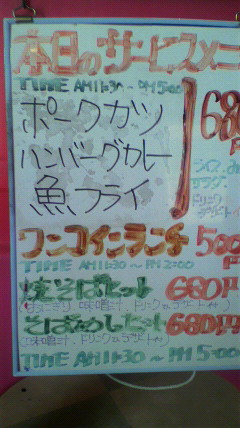 本日のサービスメニ
TIME AM11:30 ~ PM 5:00
ポークカツ
ハンバーグカレー
魚フライ
680
ライス,み
サラダ
ドリンク
デザート
ワンコインランチ 500
TIME AM11:30 ~ PM 2:00
焼そばセット 680円
(おにぎり 味噌汁.ドリンク.デザート付)
そばめしセット 680円
(味噌汁.ドリンク.デザート付)
TIME AM11:30 ~ PM 5:00